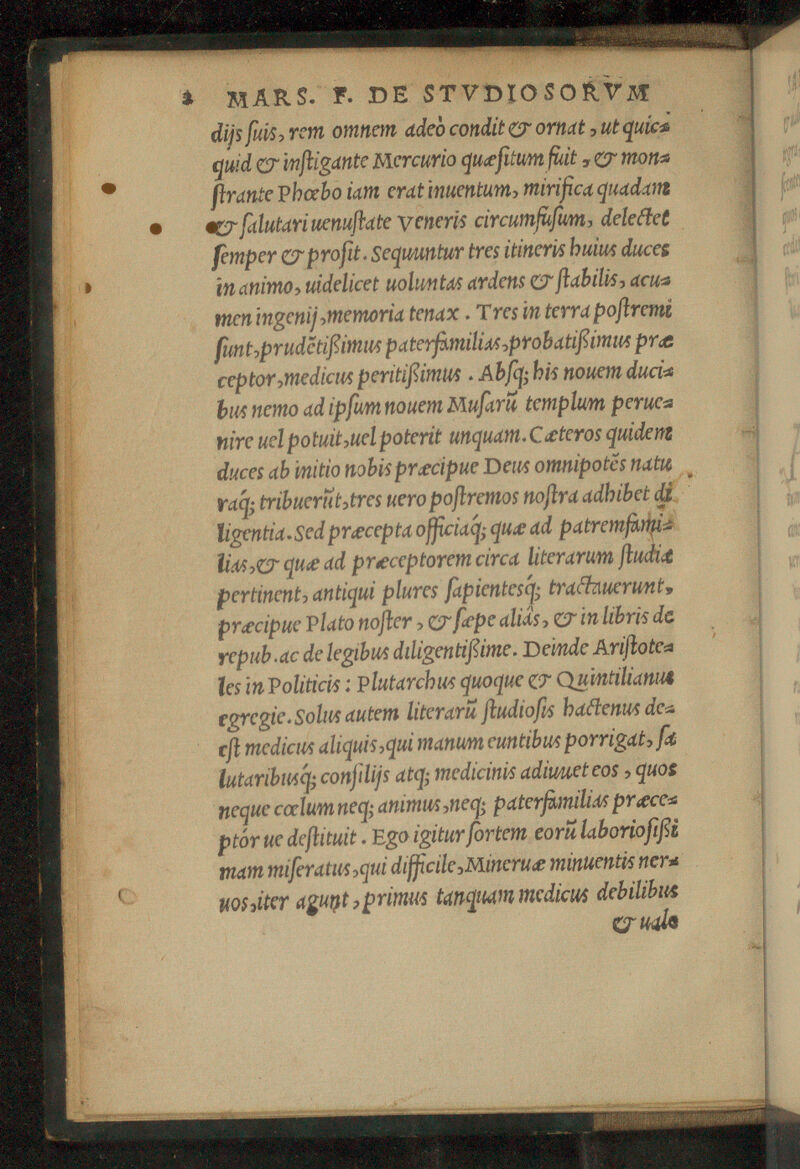 2 MARS. F. DE STVDIOSORVM
dijs ſuis, rem omnem adeò condit & ornat, ut quic⸗
quid & inſtigante Mercurio quæſitum fuit, & mon⸗
ſtrante Phœbo iam erat inuentum, mirifica quadam
& ſalutari uenuſtate Veneris circumfuſum, delectet
ſemper & proſit. Sequuntur tres itineris huius duces
in animo, uidelicet uoluntas ardens & ſtabilis, acu⸗
men ingenij, memoria tenax. Tres in terra poſtremi
ſunt, prudētißimus paterfamilias, probatißimus præ
ceptor, medicus peritißimus. Abſq; his nouem duci⸗
bus nemo ad ipſum nouem Muſarū templum perue⸗
nire uel potuit, uel poterit unquam. Cæteros quidem
duces ab initio nobis præcipue Deus omnipotēs natu
raq́; tribuerūt, tres uero poſtremos noſtra adhibet di
ligentia. Sed præcepta officiaq́; quæ ad patremfami⸗
lias, & quæ ad præceptorem circa literarum ſtudia
pertinent, antiqui plures ſapientesq́; tractauerunt,
præcipue Plato noſter, & ſæpe aliás, & in libris de
repub. ac de legibus diligentißime. Deinde Ariſtote⸗
les in Politicis: Plutarchus quoque & Quintilianus
egregie. Solus autem literarū ſtudioſis hactenus de⸗
eſt medicus aliquis, qui manum euntibus porrigat, ſa
lutaribusq́; conſilijs atq; medicinis adiuuet eos, quos
neque cœlum neq; animus, neq; paterfamilias præce⸗
ptór ue deſtituit. Ego igitur ſortem eorū laborioſißi
mam miſeratus, qui difficile, Mineruæ minuentis ner⸗
uos, iter agunt, primus tanquam medicus debilibus
& uale